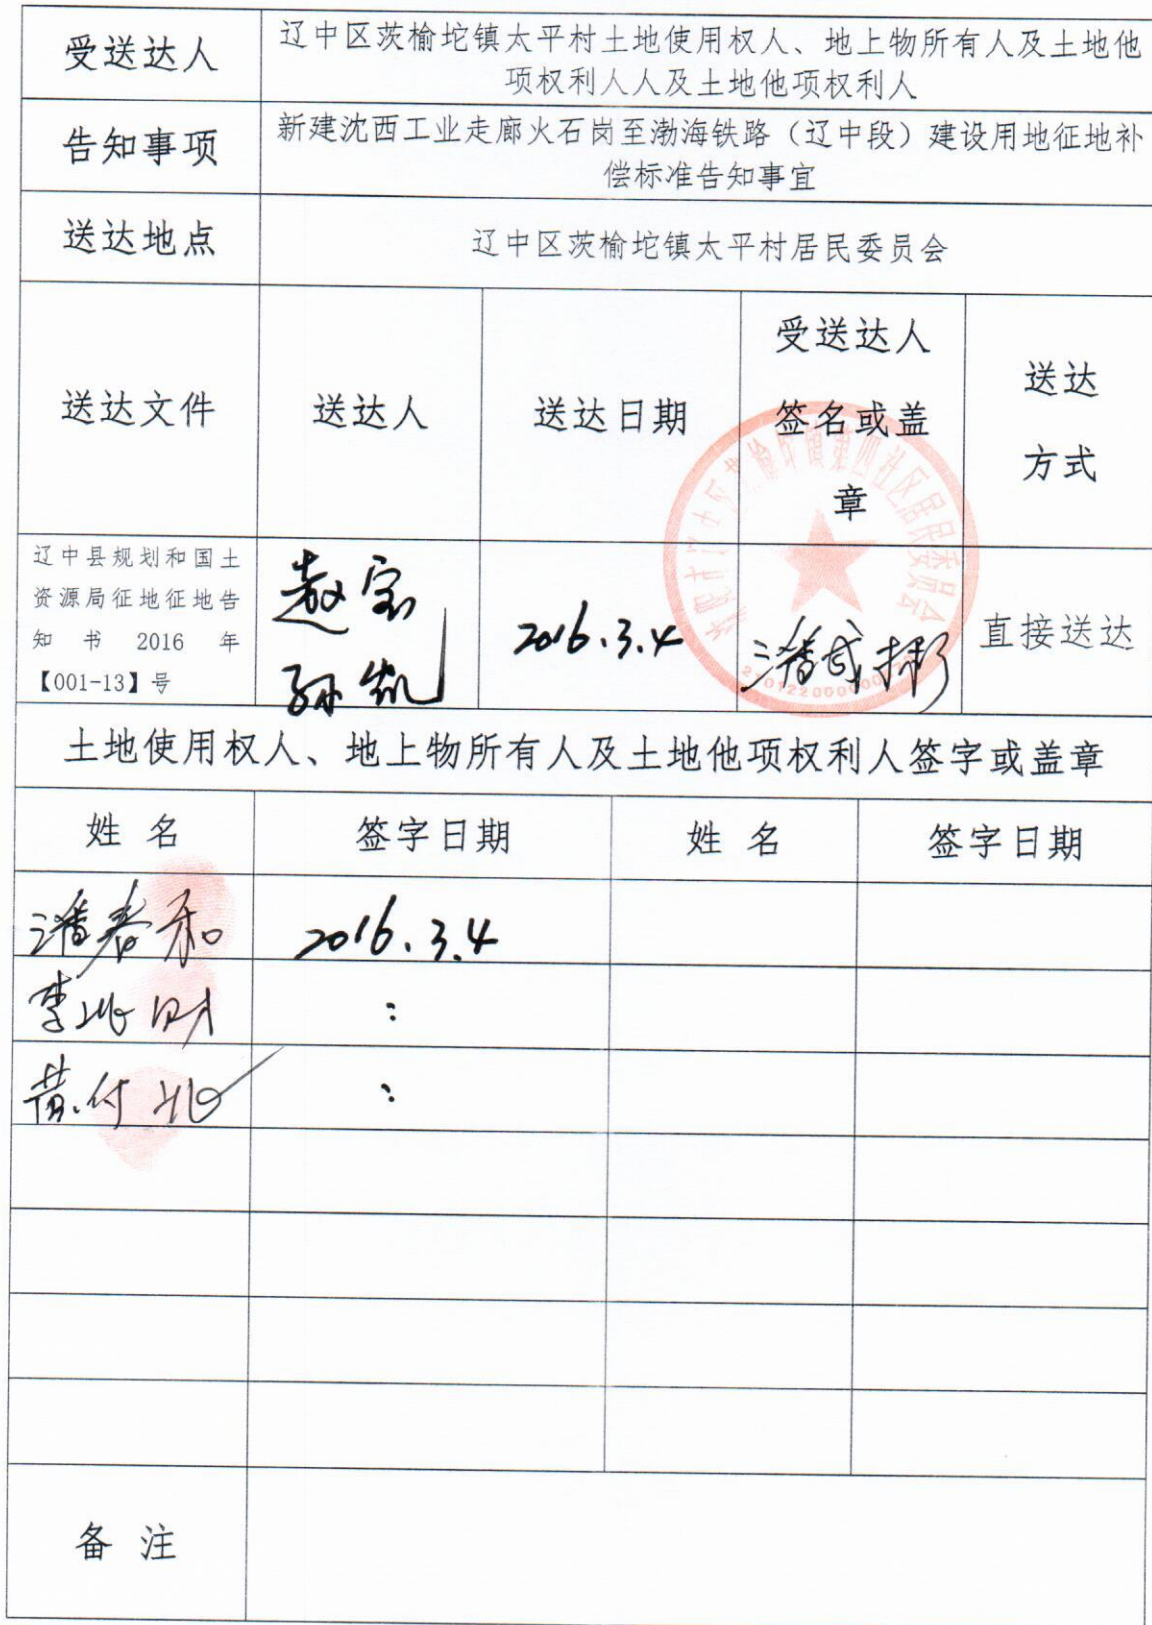 受送达人
辽中区茨榆坨镇太平村土地使用权人、地上物所有人及土地他
项权利人人及土地他项权利人
告知事项
新建沈西工业走廊火石岗至渤海铁路（辽中段）建设用地征地补
偿标准告知事宜
送达地点
辽中区茨榆坨镇太平村居民委员会
送达文件
送达人
送达日期
受送达人
签名或盖
章
送达
方式
辽中县规划和国土
资源局征地征地告
知书2016年
【001-13】号
赵宝
孙凯
2016.3.4
直接送达
土地使用权人、地上物所有人及土地他项权利人签字或盖章
姓名 签字日期 姓名 签字日期
潘春和 2016.3.4
备注